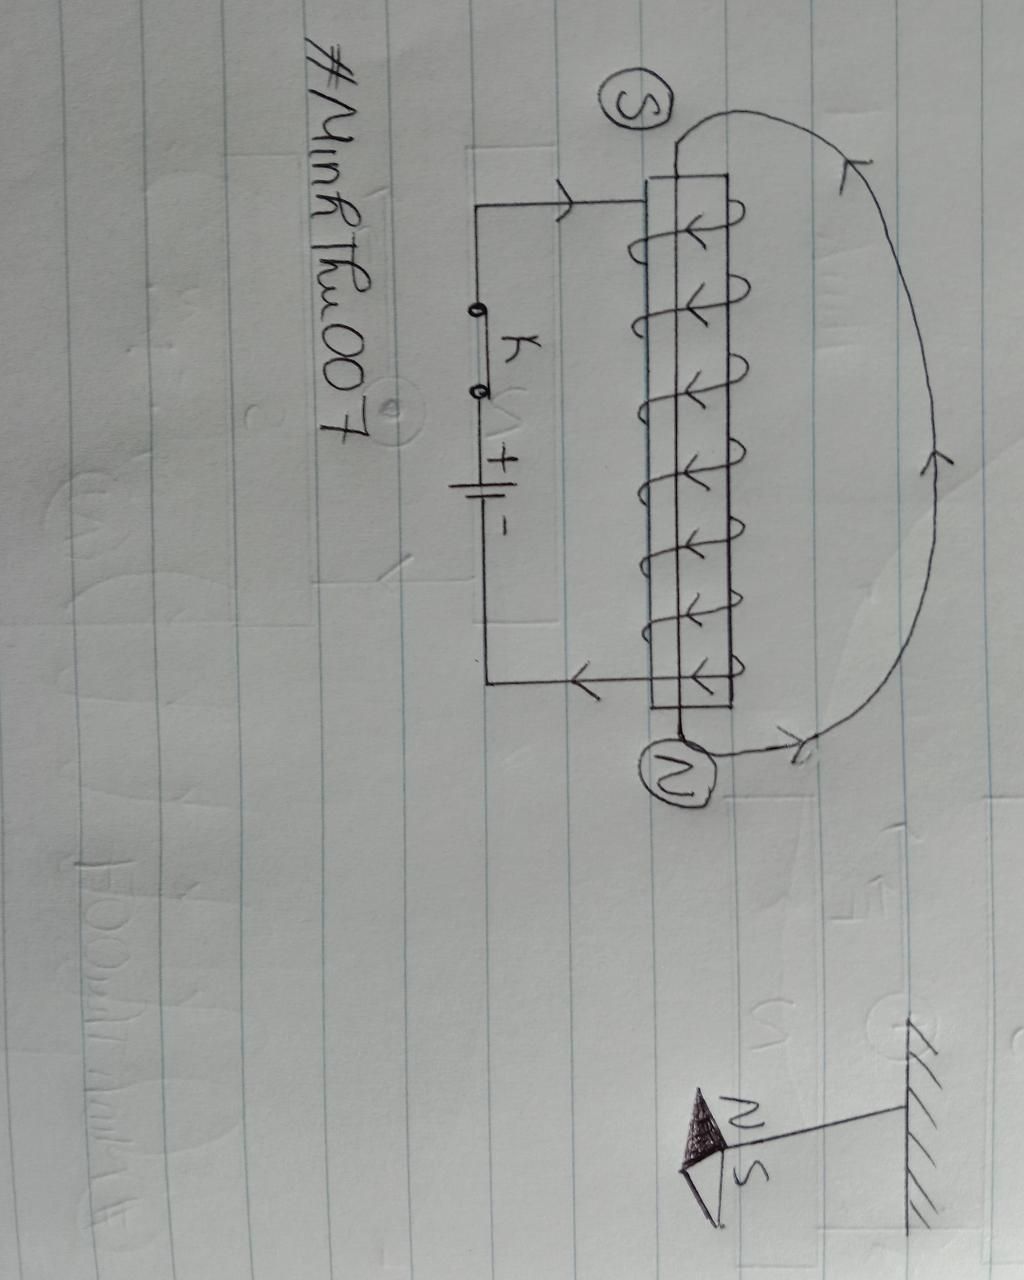 N S
S
N
K + -
#MinhThu007